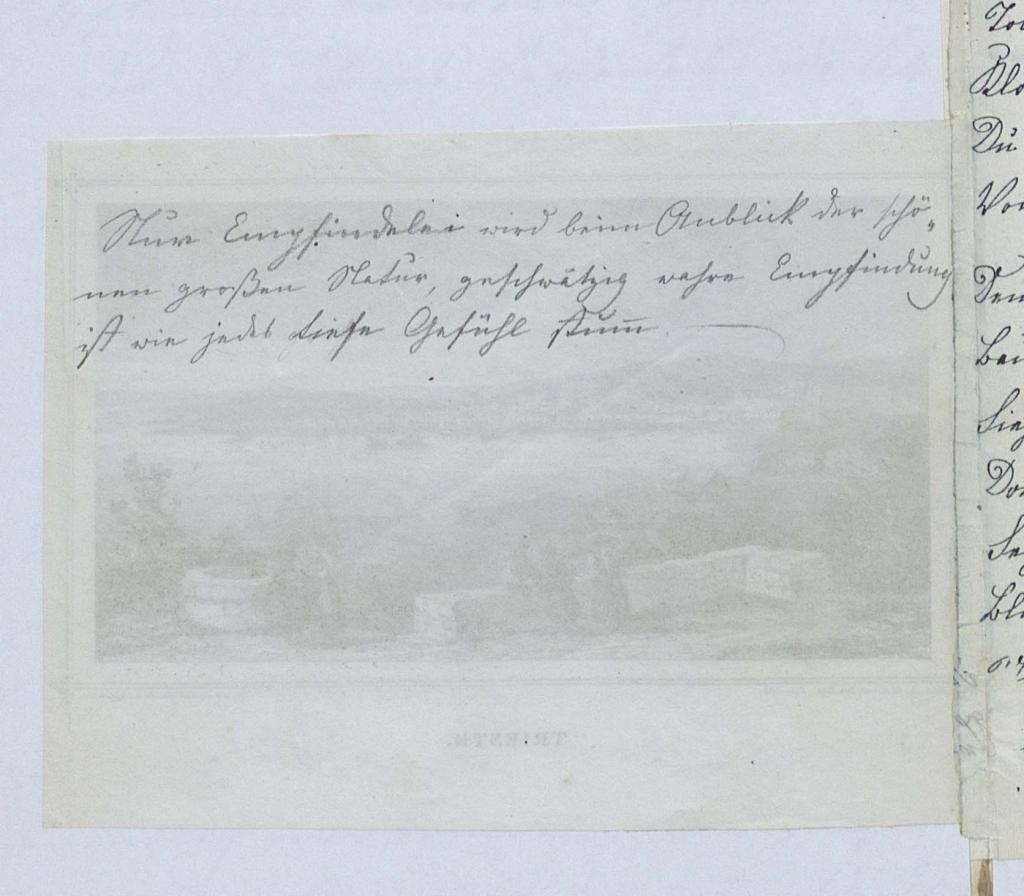 Nur Empfindelei wird beim Anblick der schö-
nen großen Natur, geschwätzig wahre Empfindung
ist wie jedes tiefe Gefühl stum̅.
TRIESTE.
Du